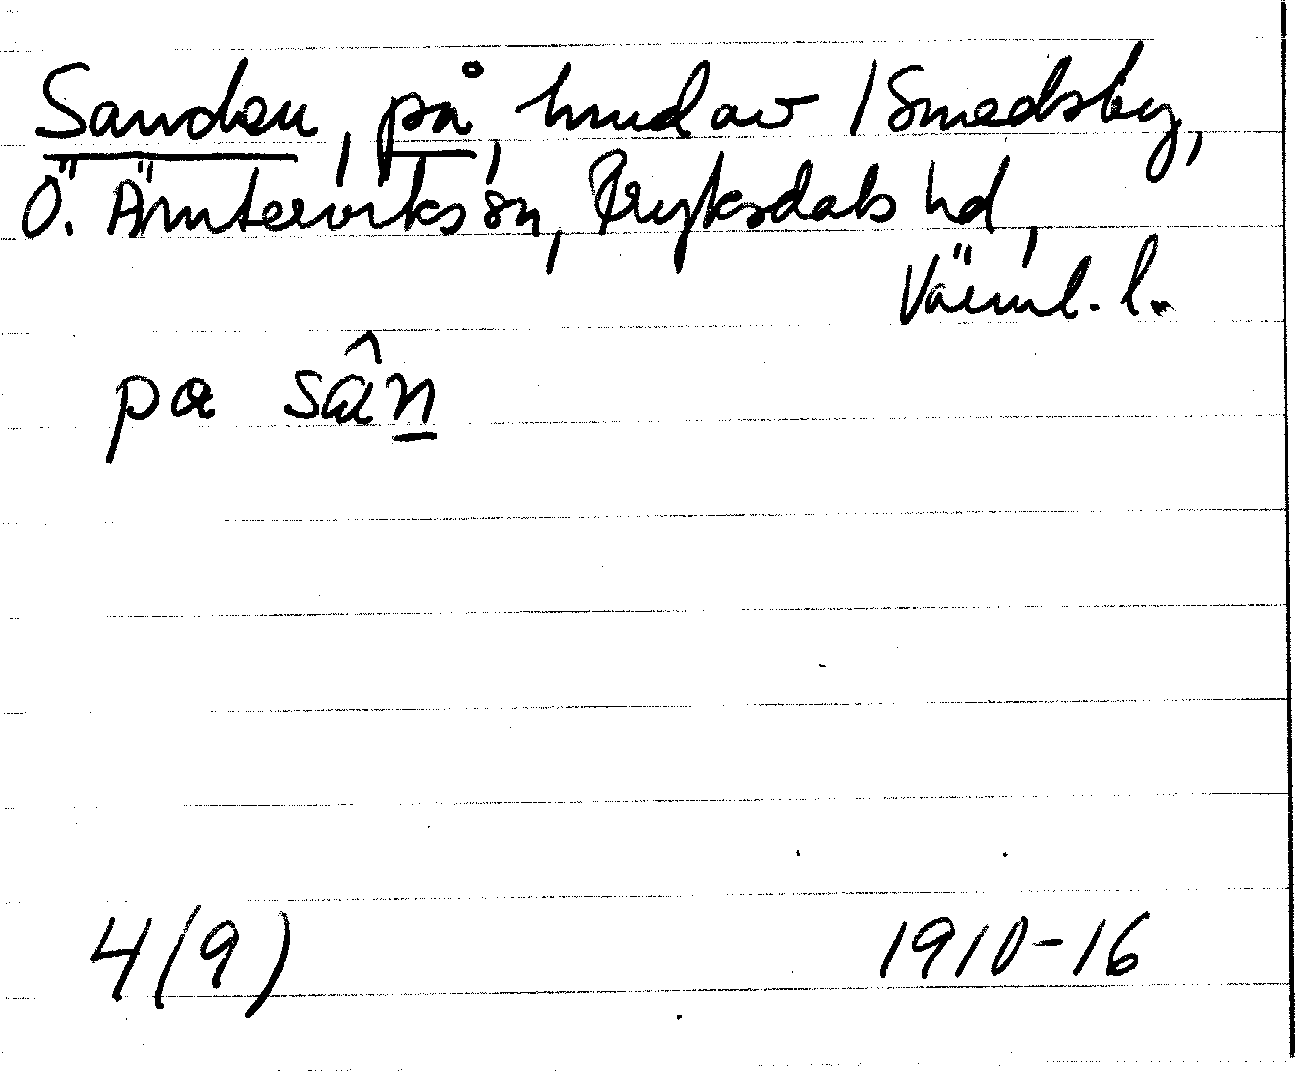 Sanden, på, hmd av 1 Smedsby,
Ö. Ämterviks sn, Fryksdals hd,
Värml. l.
pa sân
4(9) 1910-16